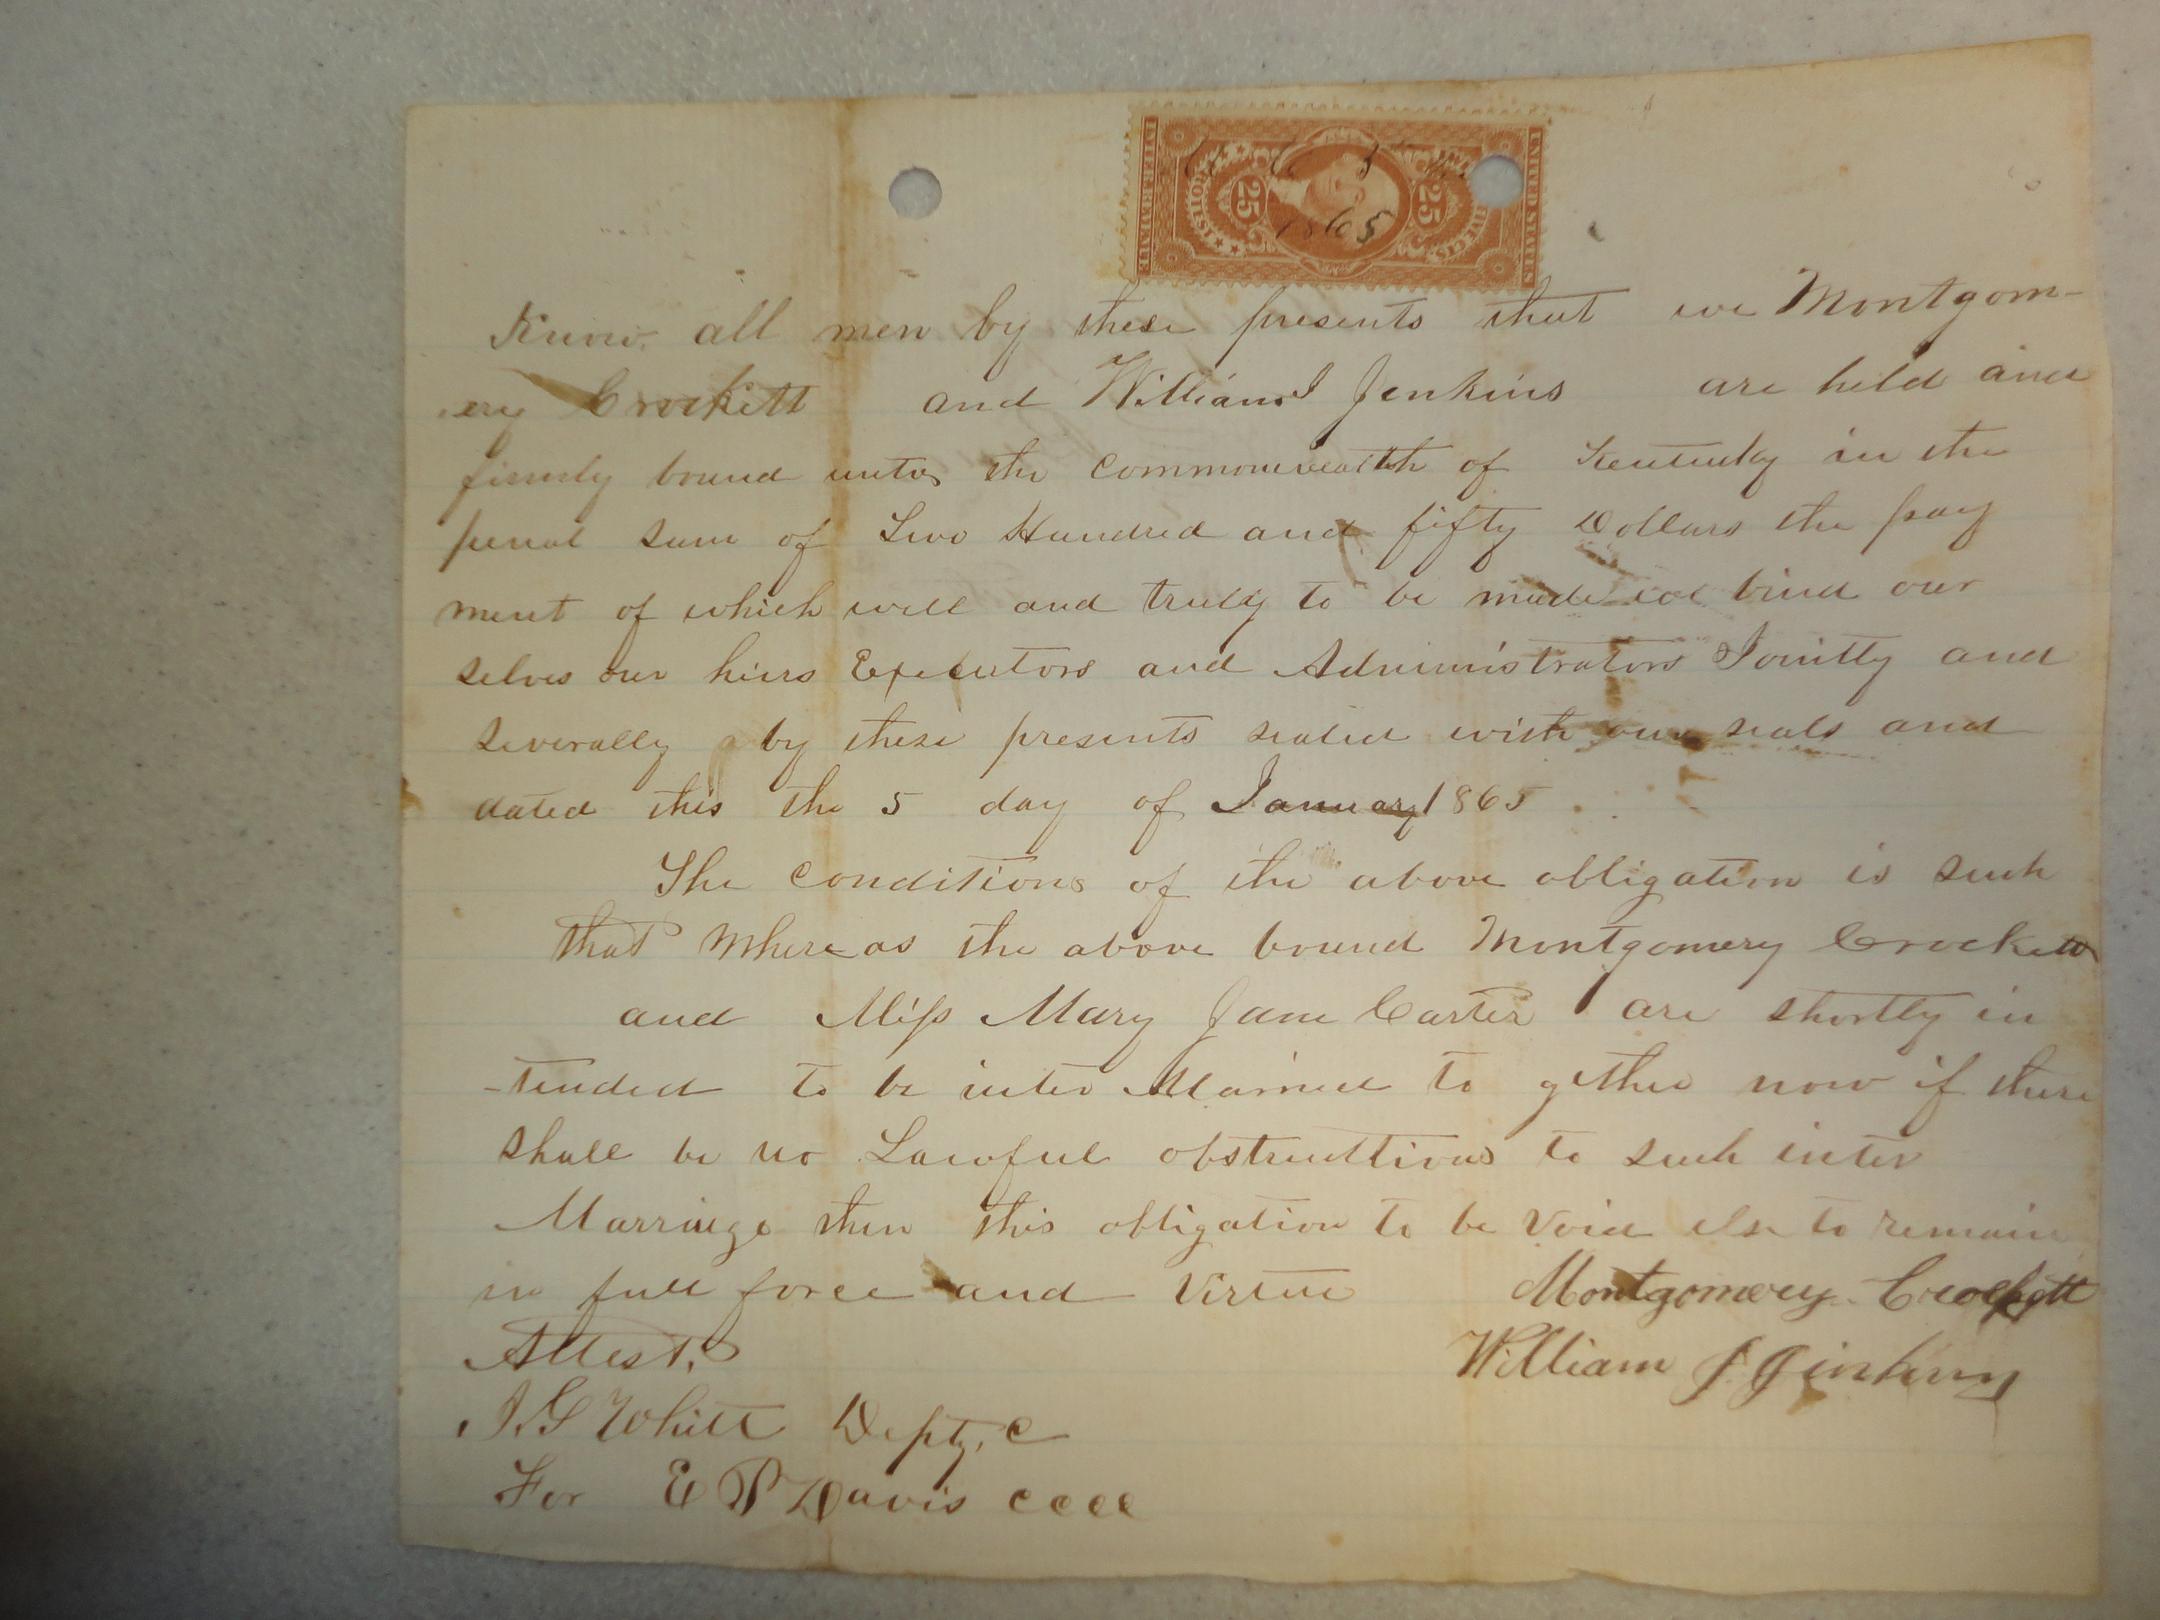 INTER. REVENUE
UNITED STATES
25
25
1865
Know all men by these presents that we Montgom-
ery Crockett and William J Jenkins are held and
firmly bound unto the commonwealth of Kentucky in the
penal sum of Two Hundred and fifty Dollars the pay
ment of which will and truly to be made we bind our
selves our hiers Executors and Administrators Jointly and
severally by these presents sealed with our seals and
dated this the 5 day of January 1865
The conditions of the above obligation is such
that Whereas the above bound Montgomery Crockett
and Miss Mary Jane Carter are shortly in
-tended to be inter Married to gether now if there
shall be no Lawful obstructtions to such inter
Marriage then this obligation to be Void else to remain
in full force and Virtue Montgomery Crockett
Attest, William J. Jinkins
J. G Whitt Depty, C
For E P Davis cccc